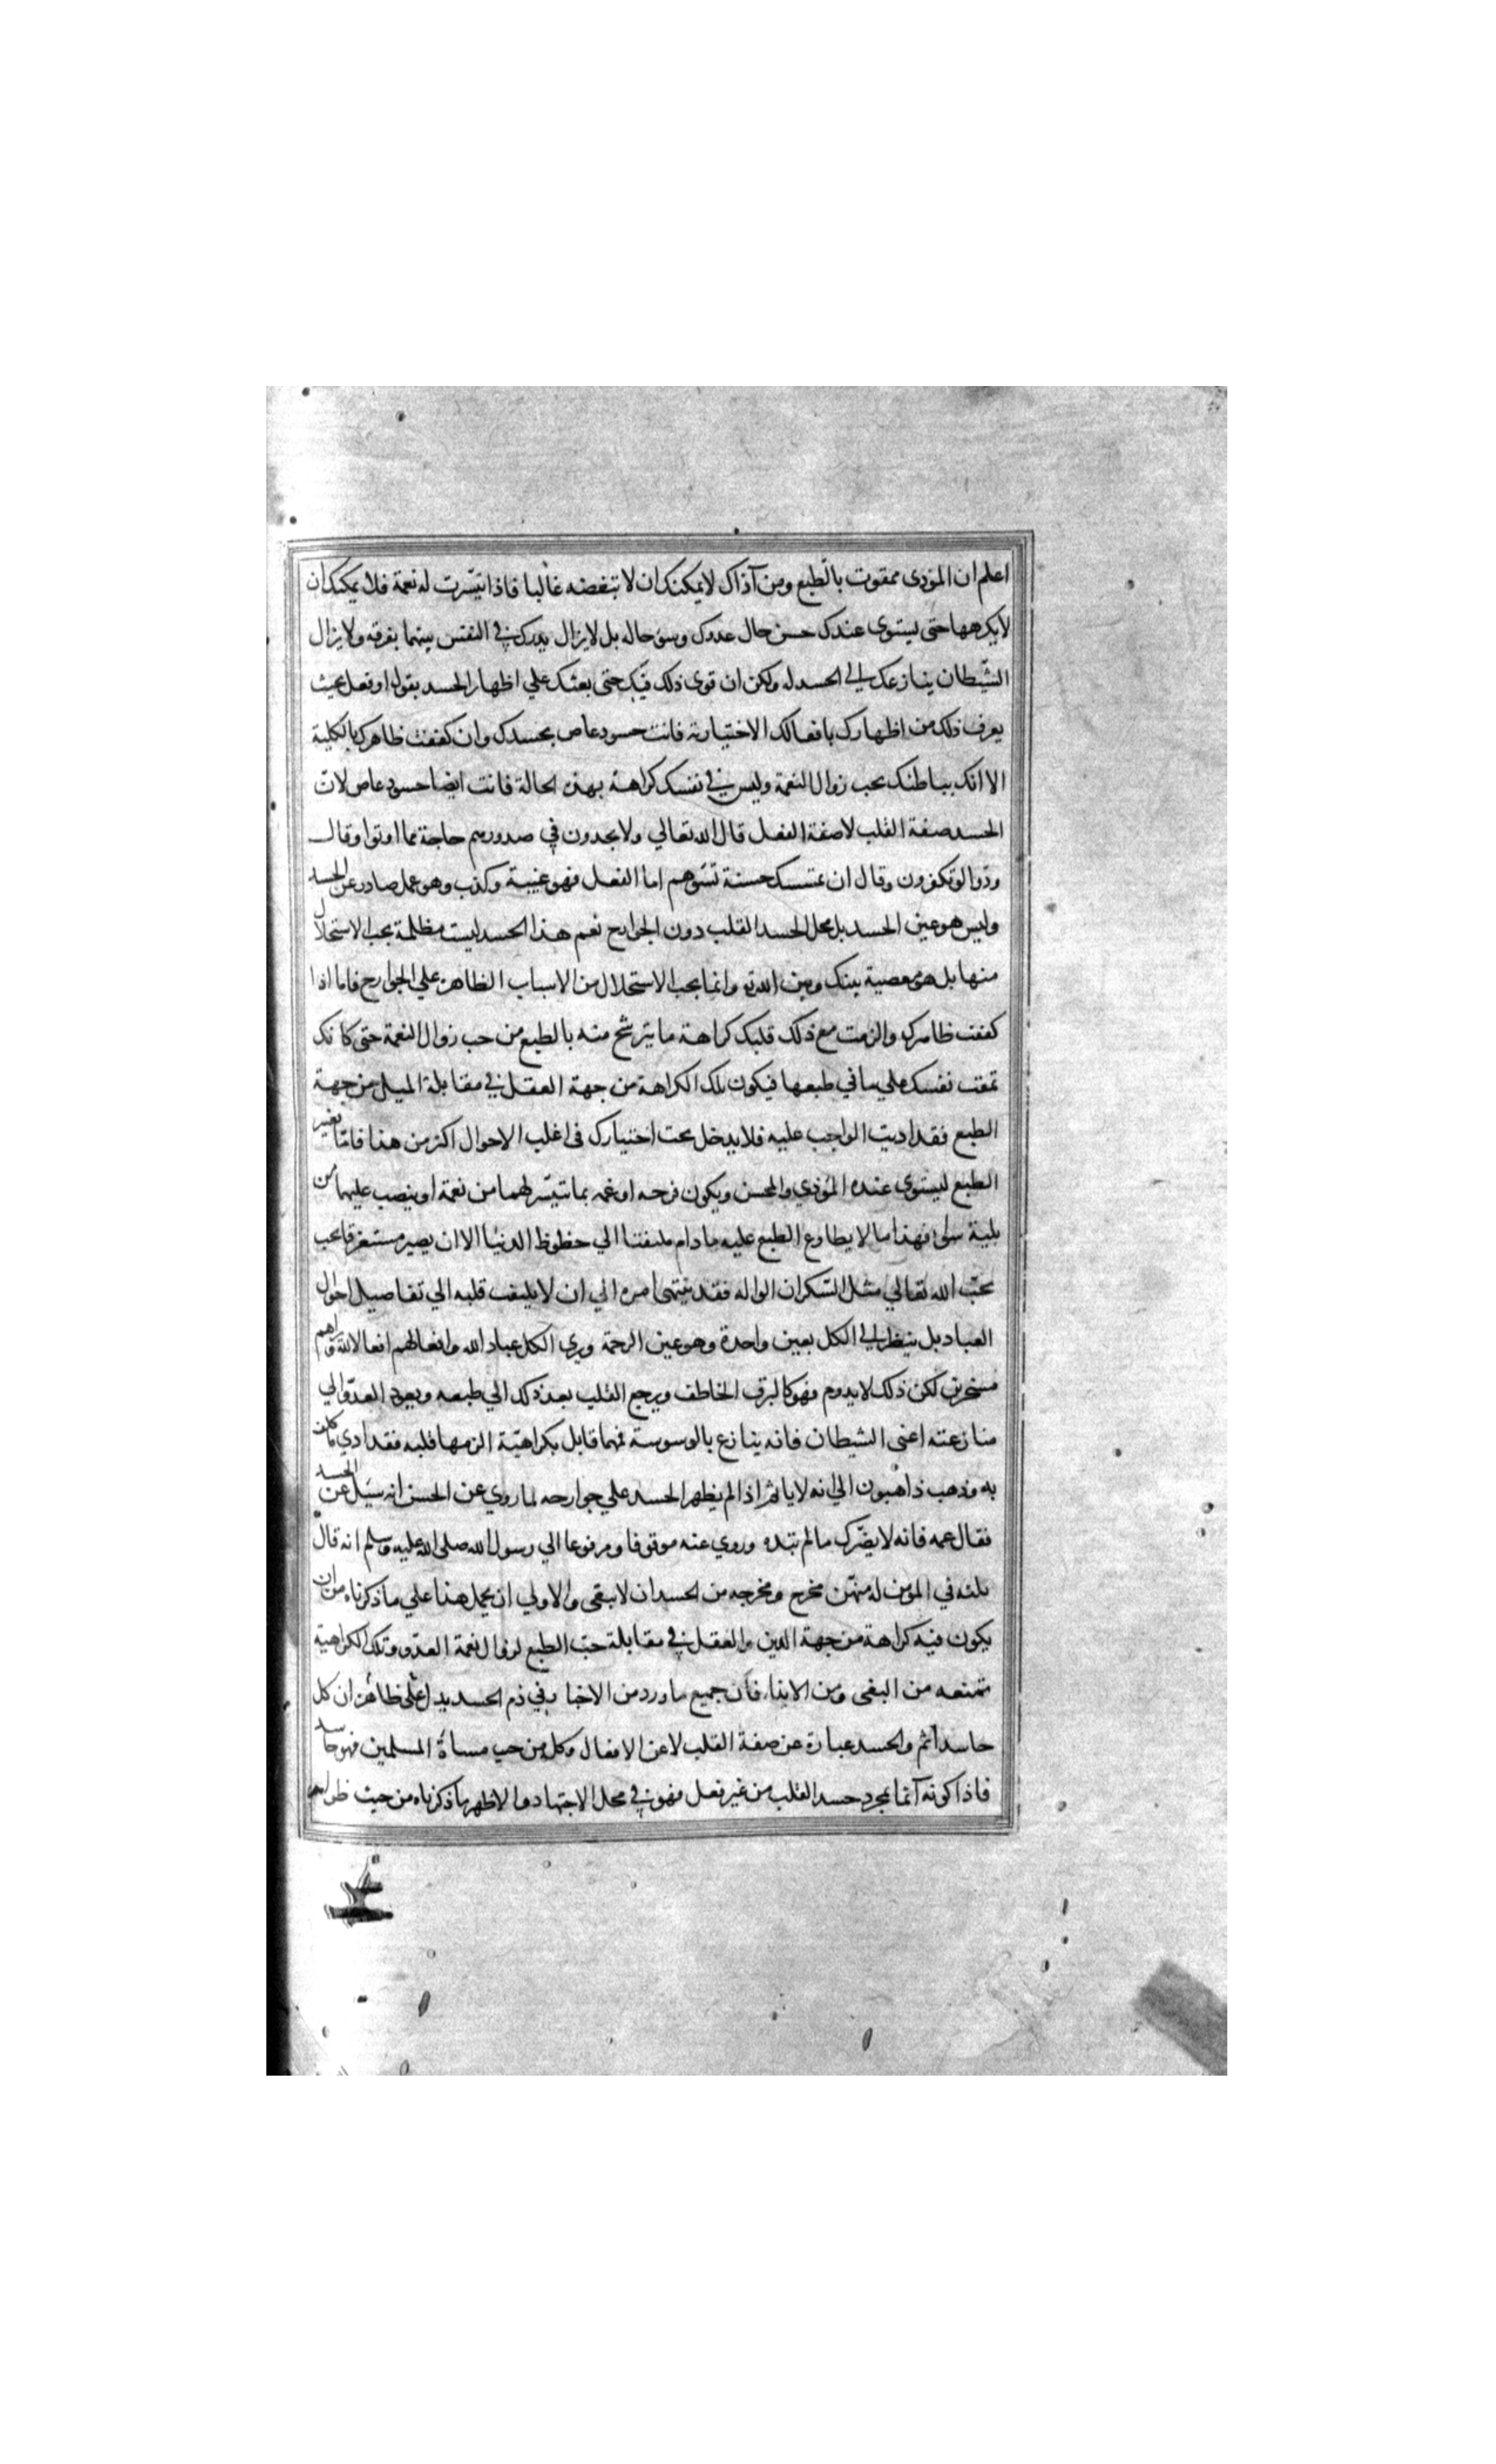 اعلم ان المؤذى ممقوت بالطبع ومن آذاك لا يمكنك ان لا تبغضه غالبا فاذا تيسّرت له نعمة فلا يمكنك ان
لا يكرهها حتى يستوى عندك حسن حال عدوك وسوء حاله بل لا يزال يدرك في النفس بينهما بفرقه ولا يزال
الشّيطان ينازعك الي الحسد له ولكن ان قوى ذلك فيك حتى بعثك علي اظهار الحسد بقول او فعل بحيث
يعرف ذلك من اظهارك بافعالك الاختيارية فانت حسود عاص بحسدك وان كففت ظاهرك بالكلية
الا انك بباطنك تحب زوال النعمة وليس في نفسك كراهة بهذه الحالة فانت ايضا حسود عاص لان
الحسد صفة القلب لا صفة الفعل قال الله تعالي ولا يجدون في صدورهم حاجة مما اوتوا وقال
ودّوا لو تكفرون وقال ان تمسسك حسنة تسوهم اما الفعل فهو غيبة وكذب وهو عمل صادر عن الحسد
وليس هو عين الحسد بل محل الحسد القلب دون الجوارح نعم هذا الحسد ليست مظلمة يجب الاستحلال
منها بل هو معصية بينك وبين الله وانما يجب الاستحلال من الاسباب الظاهرة علي الجوارح فاما اذا
كففت ظاهرك والزمت مع ذلك قلبك كراهة ما يترشح منه بالطبع من حب زوال النعمة حتى كانك
تمقت نفسك علي ما في طبعها فيكون تلك الكراهة من جهة العقل في مقابلة الميل من جهة
الطبع فقد اديت الواجب عليه فلا يدخل تحت اختيارك فى اغلب الاحوال اكثر من هذا فامّا تغيير
الطبع ليستوى عنده المؤذي والمحسن ويكون فرحه او غمه بما تيسّر لهما من نعمة او ينصب عليهما من
بلية سواء فهذا ما لا يطاوع الطبع عليه ما دام ملتفتا الي حظوظ الدنيا الا ان يصير مستغرقا بحب
بحبّ الله تعالي مثل السّكران الواله فقد ينتهى امره الي ان لا يلتفت قلبه الي تفاصيل احوال
العباد بل ينظر الي الكل بعين واحدة وهو عين الرحمة ويري الكل عباد الله وافعالهم افعالا لله و راهم
مسخرين لكن ذلك لا يدوم فهو كالبرق الخاطف ويرجع القلب بعد ذلك الي طبعه ويعود العدوّ الي
منازعته اعنى الشيطان فانه ينازع بالوسوسة فمهما قابل بكراهيّة الزمها قلبه فقد ادي ما كلف
به وذهب ذاهبون الي انه لا ياثم اذا لم يظهر الحسد علي جوارحه لما روي عن الحسن انه سئل عن الحسد
فقال عمه فانه لا يضّرك ما لم تبده وروي عنه موقوفا ومرفوعا الي رسول الله صلى الله عليه وسلم انه قال
ثلثه في المؤمن له منهن مخرج ومخرجه من الحسد ان لا يبغى والاولي ان يحمل هذا علي ما ذكرناه من ان
يكون فيه كراهة من جهة الدين والعقل في مقابلة حبّ الطبع لزوال نعمة العدوّ وتلك الكراهية
تمنعه من البغى ومن الايذاء فان جميع ما ورد من الاخبار في ذم الحسد يدل علي ظاهره ان كل
حاسد آثم والحسد عبارة عن صفة القلب لا عن الافعال وكل من حب مساأة المسلمين فهو حاسد
فاذا كونه آثما بمجرد حسد القلب من غير فعل فهو في محل الاجتهاد والاظهر ما ذكرناه من حيث